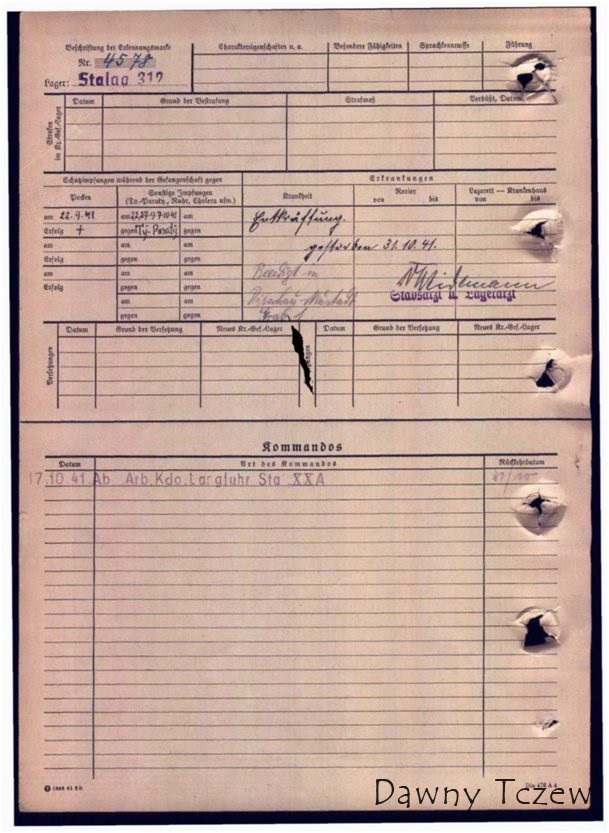 Beschriftung der Erkennungsmarke
Nr. 4578
Lager: Stalag 312
Charaktereigenschaften u. a.
Besondere Fähigkeiten
Sprachkenntnisse
Führung
Strafen im Kr.-Gef.-Lager
Datum
Grund der Bestrafung
Strafmaß
Verbüßt, Datum
Schutzimpfungen während der Gefangenschaft gegen
Erkrankungen
Pocken
Sonstige Impfungen
(Ty.-Paraty., Ruhr, Cholera usw.)
Krankheit
Revier
von bis
Lazarett — Krankenhaus
von bis
am 22.9.41
am
am
Erfolg +
gegen Ty-Paraty
gegen
Entkräftung.
am am am
Erfolg gegen gegen
gestorben 31.10.41.
am am am
Erfolg gegen gegen
Beerdigt in
am am
gegen gegen
Grab 1
Stabsarzt u. Lagerarzt
Versetzungen
Datum
Grund der Versetzung
Neues Kr.-Gef.-Lager
Datum
Grund der Versetzung
Neues Kr.-Gef.-Lager
Kommandos
Datum
Art des Kommandos
Rückkehrdatum
17.10.41 Ab Arb.Kdo.Langfuhr Sta XXA
Dawny Tczew